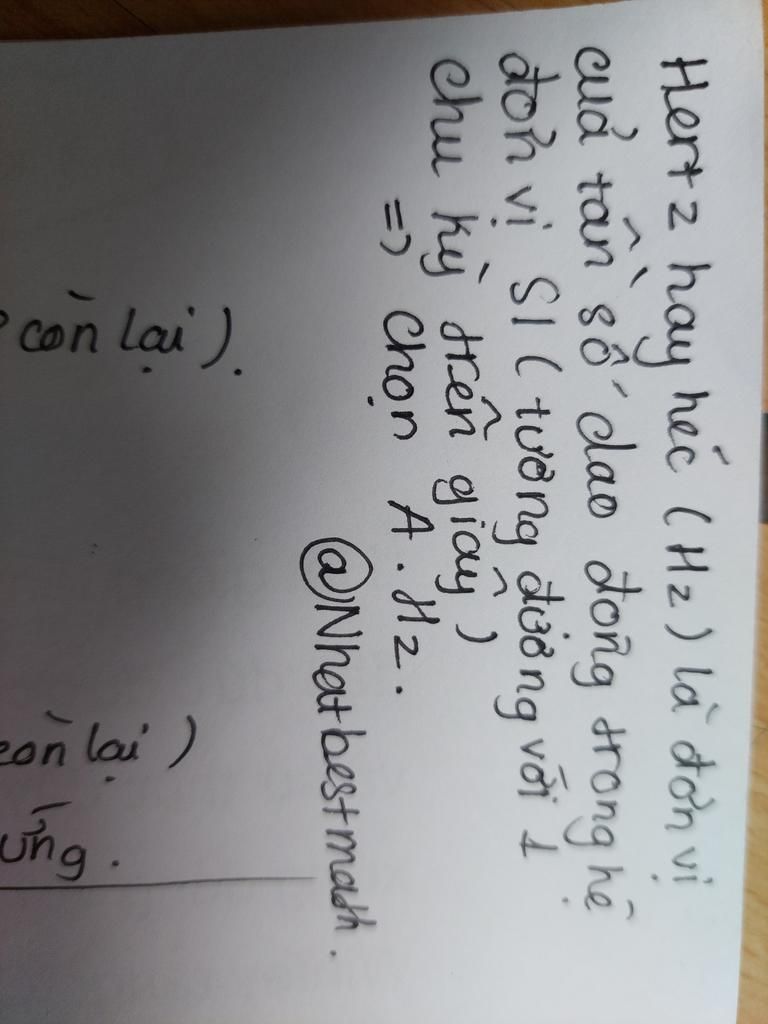 Hertz hay héc (Hz) là đơn vị
của tần số dao động trong hệ
đơn vị SI (tương đương với 1
chu kỳ trên giây)
=> chọn A. Hz.
@Nhatbestmath.
còn lại).
còn lại)
ứng.